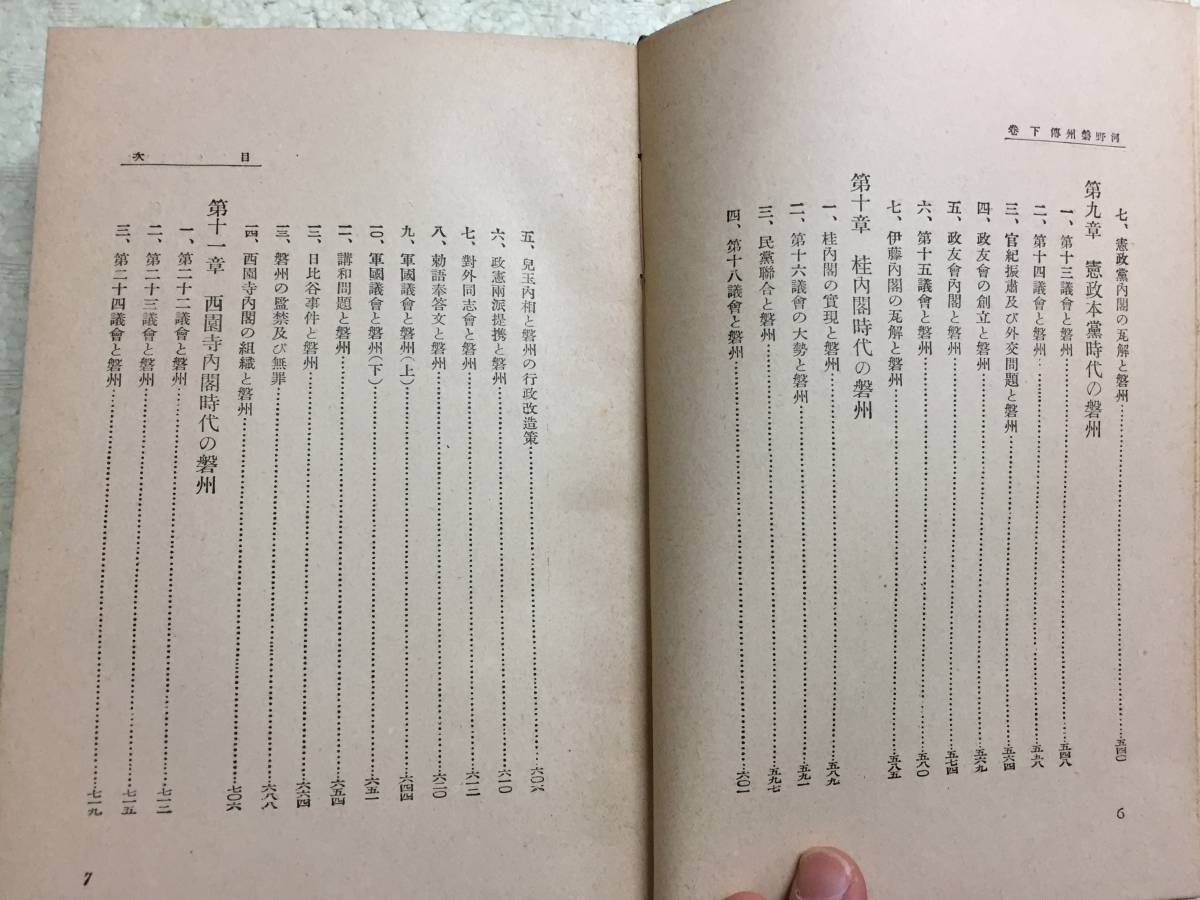 河野磐州傳 下卷
七、憲政黨內閣の瓦解と磐州……五四〇
第九章 憲政本黨時代の磐州
一、第十三議會と磐州……五四八
二、第十四議會と磐州……五五八
三、官紀振肅及び外交問題と磐州……五六四
四、政友會の創立と磐州……五六九
五、政友會內閣と磐州……五七四
六、第十五議會と磐州……五八〇
七、伊藤內閣の瓦解と磐州……五八五
第十章 桂內閣時代の磐州
一、桂內閣の實現と磐州……五八九
二、第十六議會の大勢と磐州……五九一
三、民黨聯合と磐州……五九七
四、第十八議會と磐州……六〇一
6
目次
五、兒玉內相と磐州の行政改造策……六〇六
六、政憲兩派提携と磐州……六一〇
七、對外同志會と磐州……六一二
八、勅語奉答文と磐州……六二〇
九、軍國議會と磐州(上)……六四四
一〇、軍國議會と磐州(下)……六五一
一一、講和問題と磐州……六五四
一二、日比谷事件と磐州……六六四
一三、磐州の監禁及び無罪……六八八
一四、西園寺內閣の組織と磐州……七〇六
第十一章 西園寺內閣時代の磐州
一、第二十二議會と磐州……七一二
二、第二十三議會と磐州……七一五
三、第二十四議會と磐州……七一九
7